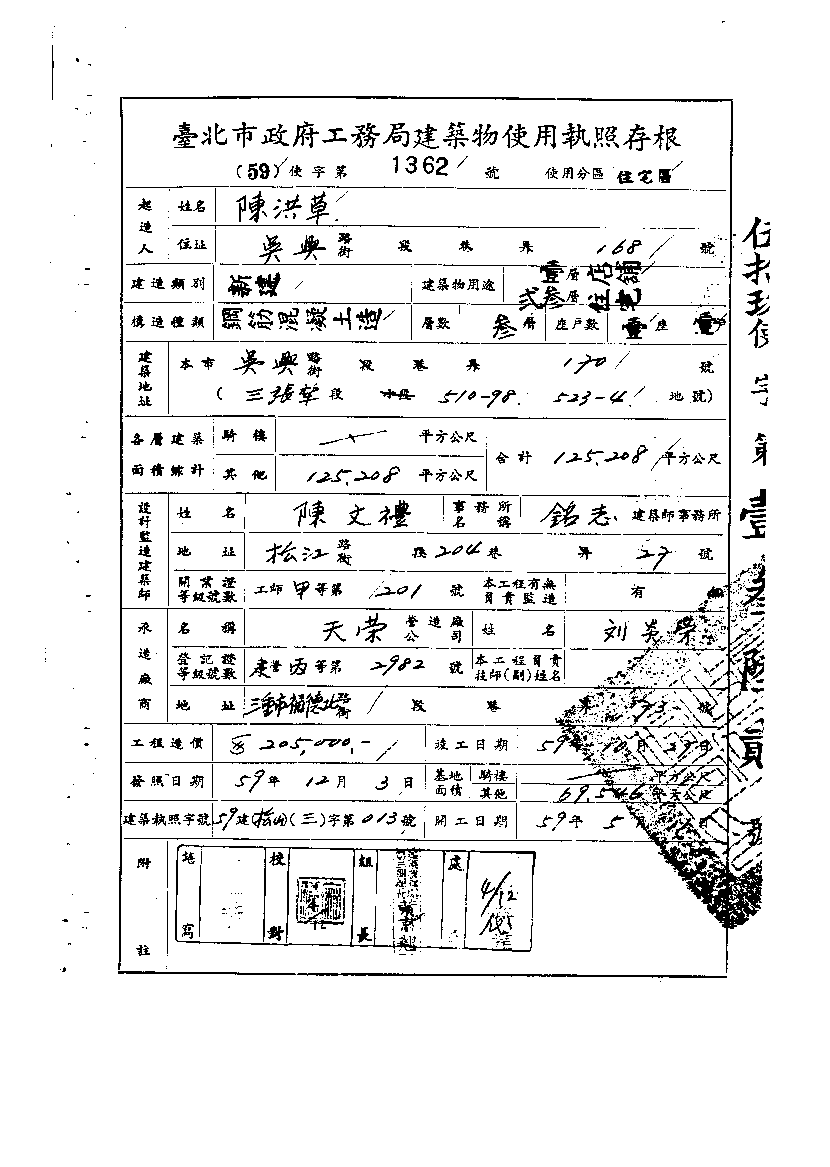 臺北市政府工務局建築物使用執照存根
(59)使字第 1362 號 使用分區 住宅區
起造人 姓名 陳洪草
住址 吳興 路街 段 巷 弄 168 號
建造類別 新建 建築物用途 壹層店鋪 弍叁層住宅
構造種類 鋼筋混凝土造 層數 叁層 座戶數 壹座 壹戶
建築地址 本市 吳興 路街 段 巷 弄 170 號
(三張犂段 小段 510-98. 523-4 地號)
各層建築面積綜計 騎樓 平方公尺 合計 125.208 平方公尺
其他 125.208 平方公尺
設計監造建築師 姓名 陳文禮 事務所名稱 銘志 建築師事務所
地址 松江 路街 段 204 巷 弄 27 號
開業證等級號數 工師甲等第 1201 號 本工程有無負責監造 有 無
承造廠商 名稱 天榮 營造廠公司 姓名 刘炎榮
登記證等級號數 建營丙等第 2982 號 本工程負責技師(副)姓名
地址 三重市福德北路街 段 巷 弄 73 號
工程造價 205,000,- 竣工日期 59年10月29日
發照日期 59年12月3日 基地面積 騎樓 平方公尺
其他 69.546 平方公尺
建築執照字號 59建(松山)(三)字第013號 開工日期 59年5月 日
附註 填寫 校對 組長 處
4/12
伍拾玖使字第壹叁陸貳號